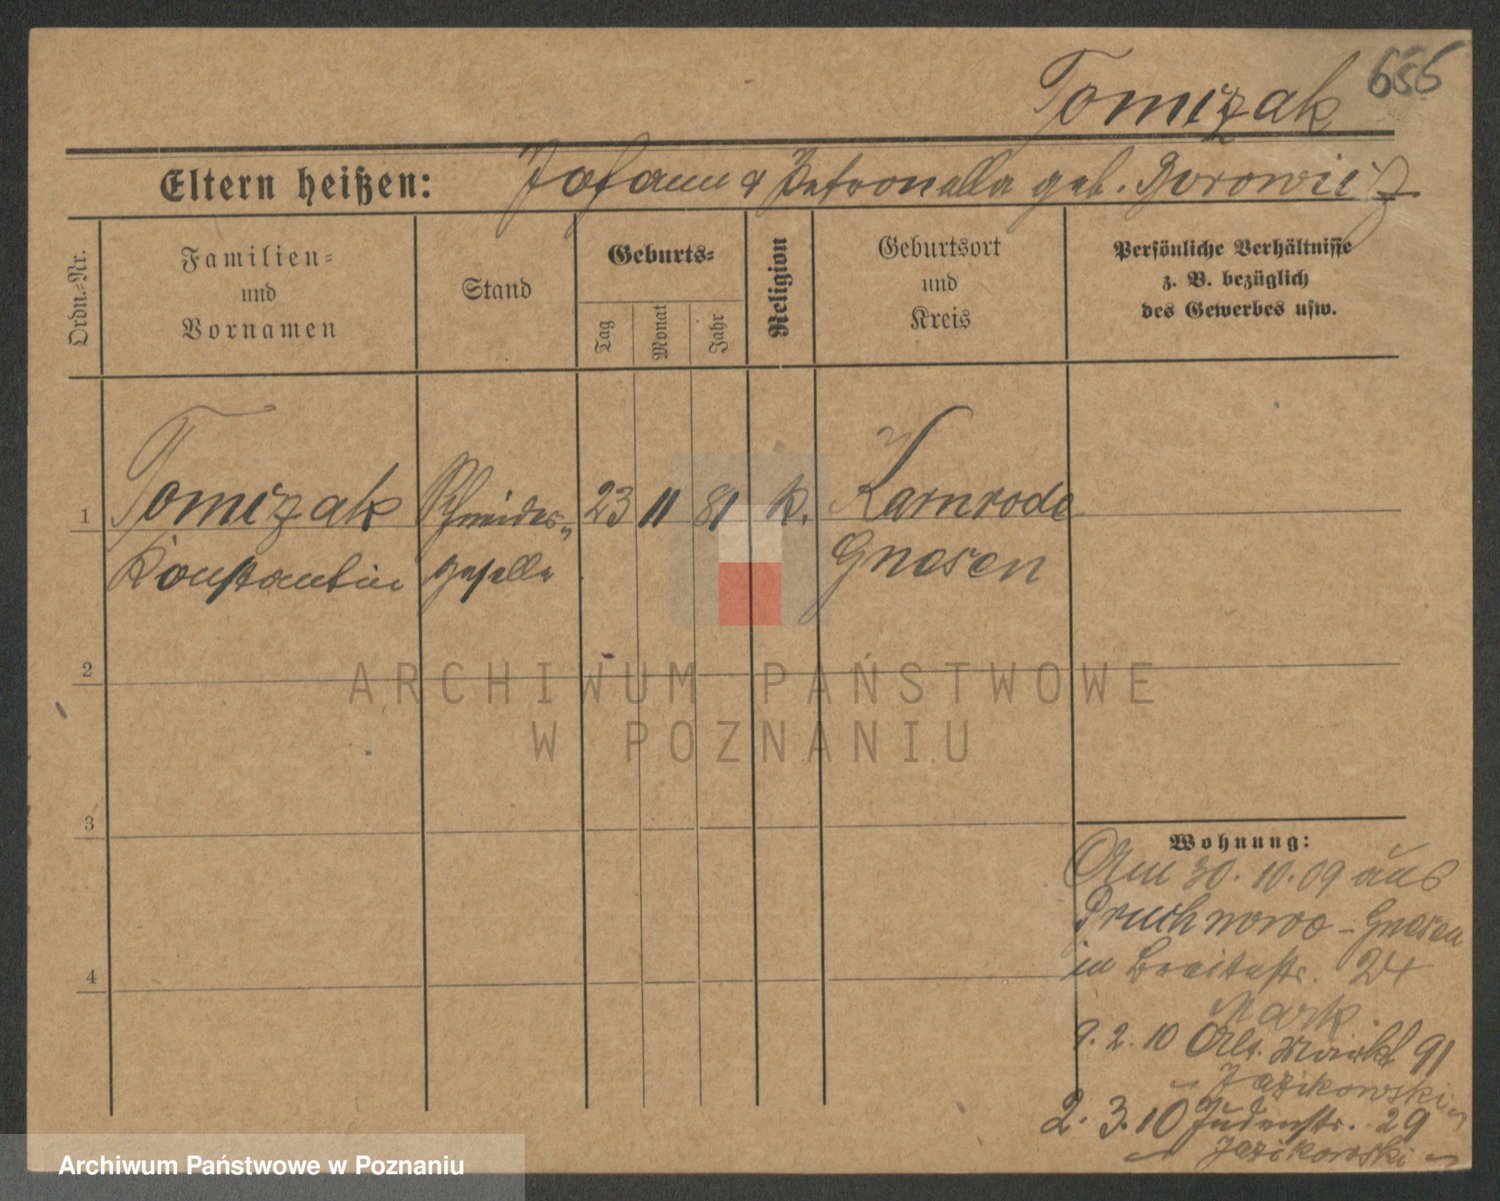 655
Tomczak
Eltern heißen: Johann & Petronella geb. Borowicz
Ordn.-Nr.
Familien-
und
Vornamen
Stand
Geburts-
Tag
Monat
Jahr
Religion
Geburtsort
und
Kreis
Persönliche Verhältnisse
z. B. bezüglich
des Gewerbes usw.
1
Tomczak Schneider- 23 11 81 k. Karnrode
Konstantin geselle Gnesen
2
3
4
Wohnung:
Am 30.10.09 aus
Pruchnowo - Gnesen
in Breitestr. 24
Mark
9.2.10 Alt. Markt 91
Jazikowski
2.3.10 Judenstr. 29
Jazikowski
ARCHIWUM PAŃSTWOWE
W POZNANIU
Archiwum Państwowe w Poznaniu